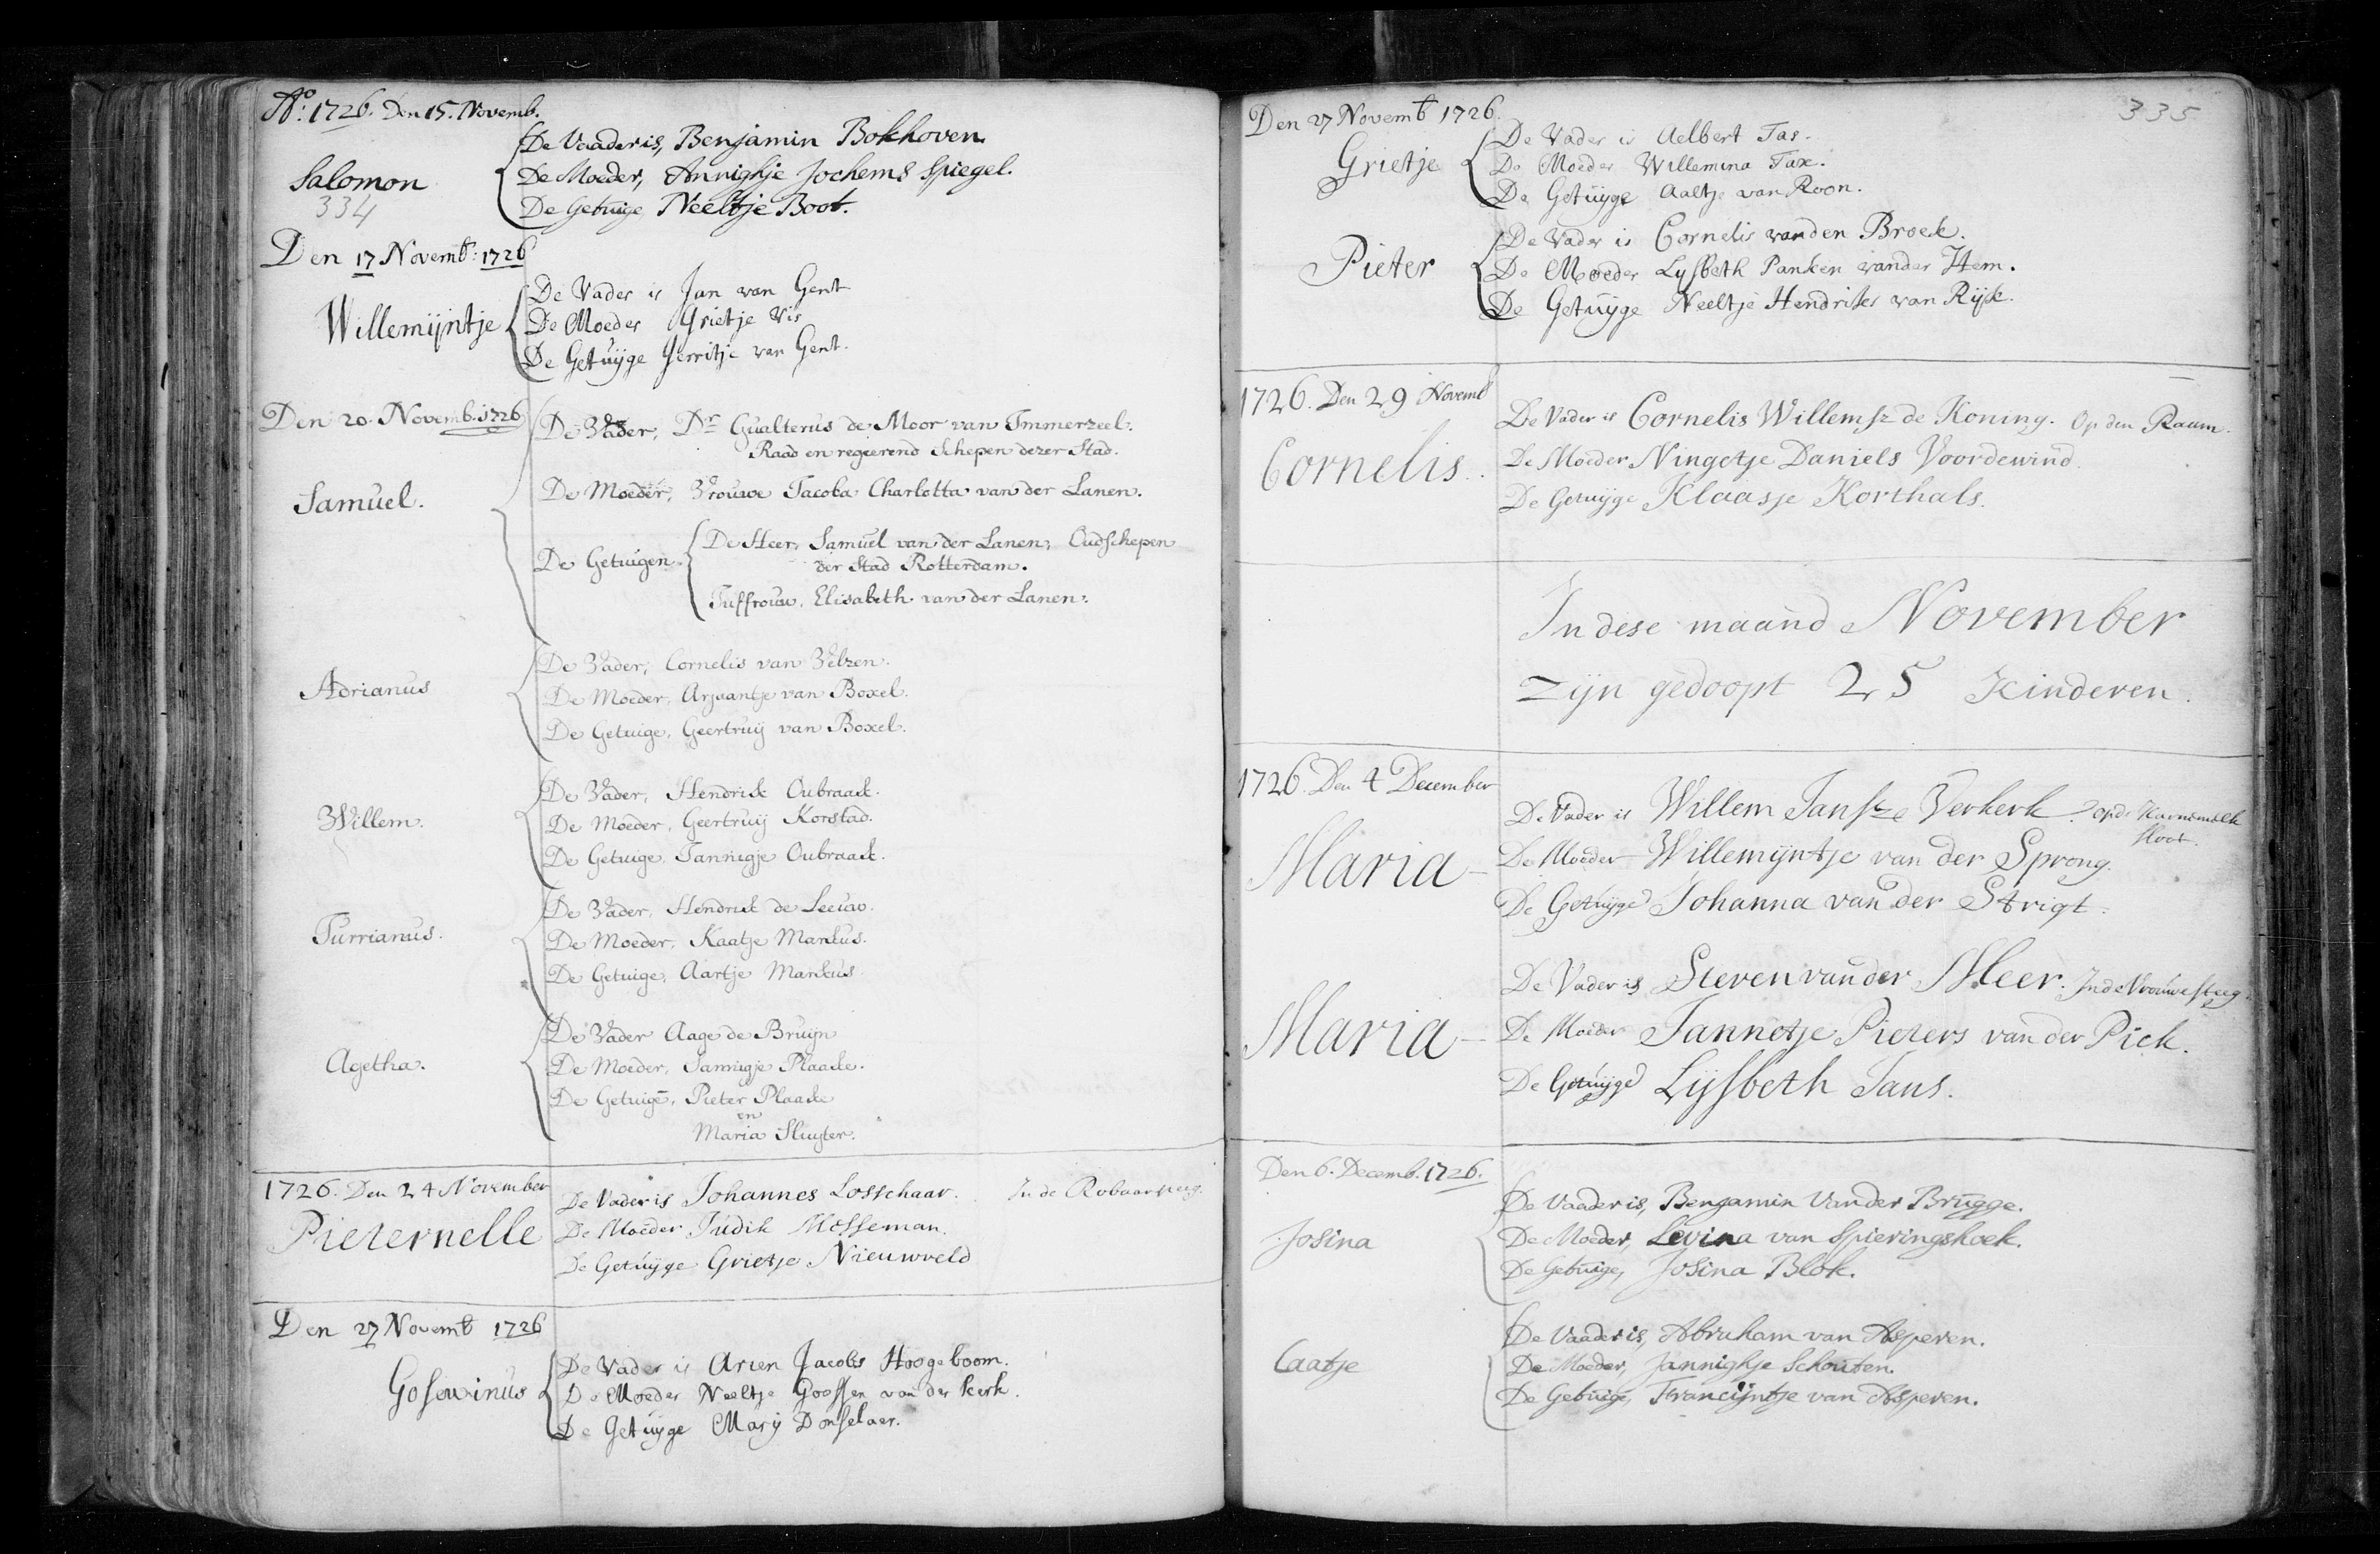 Ao: 1726. Den 15. Novemb.
De Vaader is, Benjamin Bokhoven.
Salomon
De Moeder, Annighje Jochems Spiegel.
334
De Getuige, Neeltje Boot.
Den 17 Novemb: 1726
De Vader is Jan van Gent
Willemijntje
De Moeder Grietje Vis
De Getuijge Gerritje van Gent.
Den 20. Novemb. 1726
De Vader, Dr Gualterus de Moor van Immerzeel.
Raad en regeerend Schepen dezer Stad.
Samuel.
De Moeder, Vrouwe Jacoba Charlotta van der Lanen.
De Getuigen
De Heer, Samuel van der Lanen, Oudschepen
der Stad Rotterdam.
Juffrouw, Elisabeth van der Lanen.
De Vader, Cornelis van Velzen.
Adrianus
De Moeder, Arjaantje van Boxel.
De Getuige, Geertruij van Boxel.
De Vader, Hendrik Oubraak.
Willem.
De Moeder, Geertruij Korstad.
De Getuige, Jannigje Oubraak.
De Vader, Hendrik de Leeuw.
Jurrianus.
De Moeder, Kaatje Mankus.
De Getuige, Aartje Mankus
De Vader Aage de Bruijn
Agetha.
De Moeder, Jannigje Plaake.
De Getuige, Pieter Plaake
en
Maria Sluyter.
1726. Den 24 November
De Vader is Johannes Losschaar. In de
Pieternelle
De Moeder Judik Mosseman.
De Getuijge Grietje Nieuwveld
Den 27 Novemb 1726
De Vader is Arien Jacobs Hoogeboom.
Gosewinus
De Moeder Neeltje Goossen van der kerk.
De Getuijge Marij Donselaer.
Den 27 Novemb 1726.
335
De Vader is Aelbert Tas.
Grietje
De Moeder Willemina Tax.
De Getuijge Aaltje van Roon.
De Vader is Cornelis vanden Broek.
Pieter
De Moeder Lysbeth Panken vander Hem.
De Getuijge Neeltje Hendriks van Rijk.
1726. Den 29 Novemb
De Vader is Cornelis Willemsz de Koning. Op den Raam.
Cornelis.
De Moeder Ningetje Daniels Voordewind.
De Getuijge Klaasje Korthals.
In dese maand November
zijn gedoopt 25 Kinderen.
1726. Den 4 December
De Vader is Willem Jansze Verkerk. op de Karnemelk
sloot.
Maria
De Moeder Willemijntje van der Sprong.
De Getuijge Johanna van der Strigt.
De Vader is Steven vander Meer. In de Vrouwesteeg.
Maria
De Moeder Jannetje Pieters van der Pick.
De Getuijge Lijsbeth Jans.
Den 6. Decemb. 1726.
De Vaader is, Benjamin vander Brugge.
Josina
De Moeder, Levina van Spieringshoek.
De Getuige, Josina Blok.
De Vaader is, Abraham van Asperen.
Caatje
De Moeder, Jannighje Schouten.
De Getuige, Francijntje van Asperen.